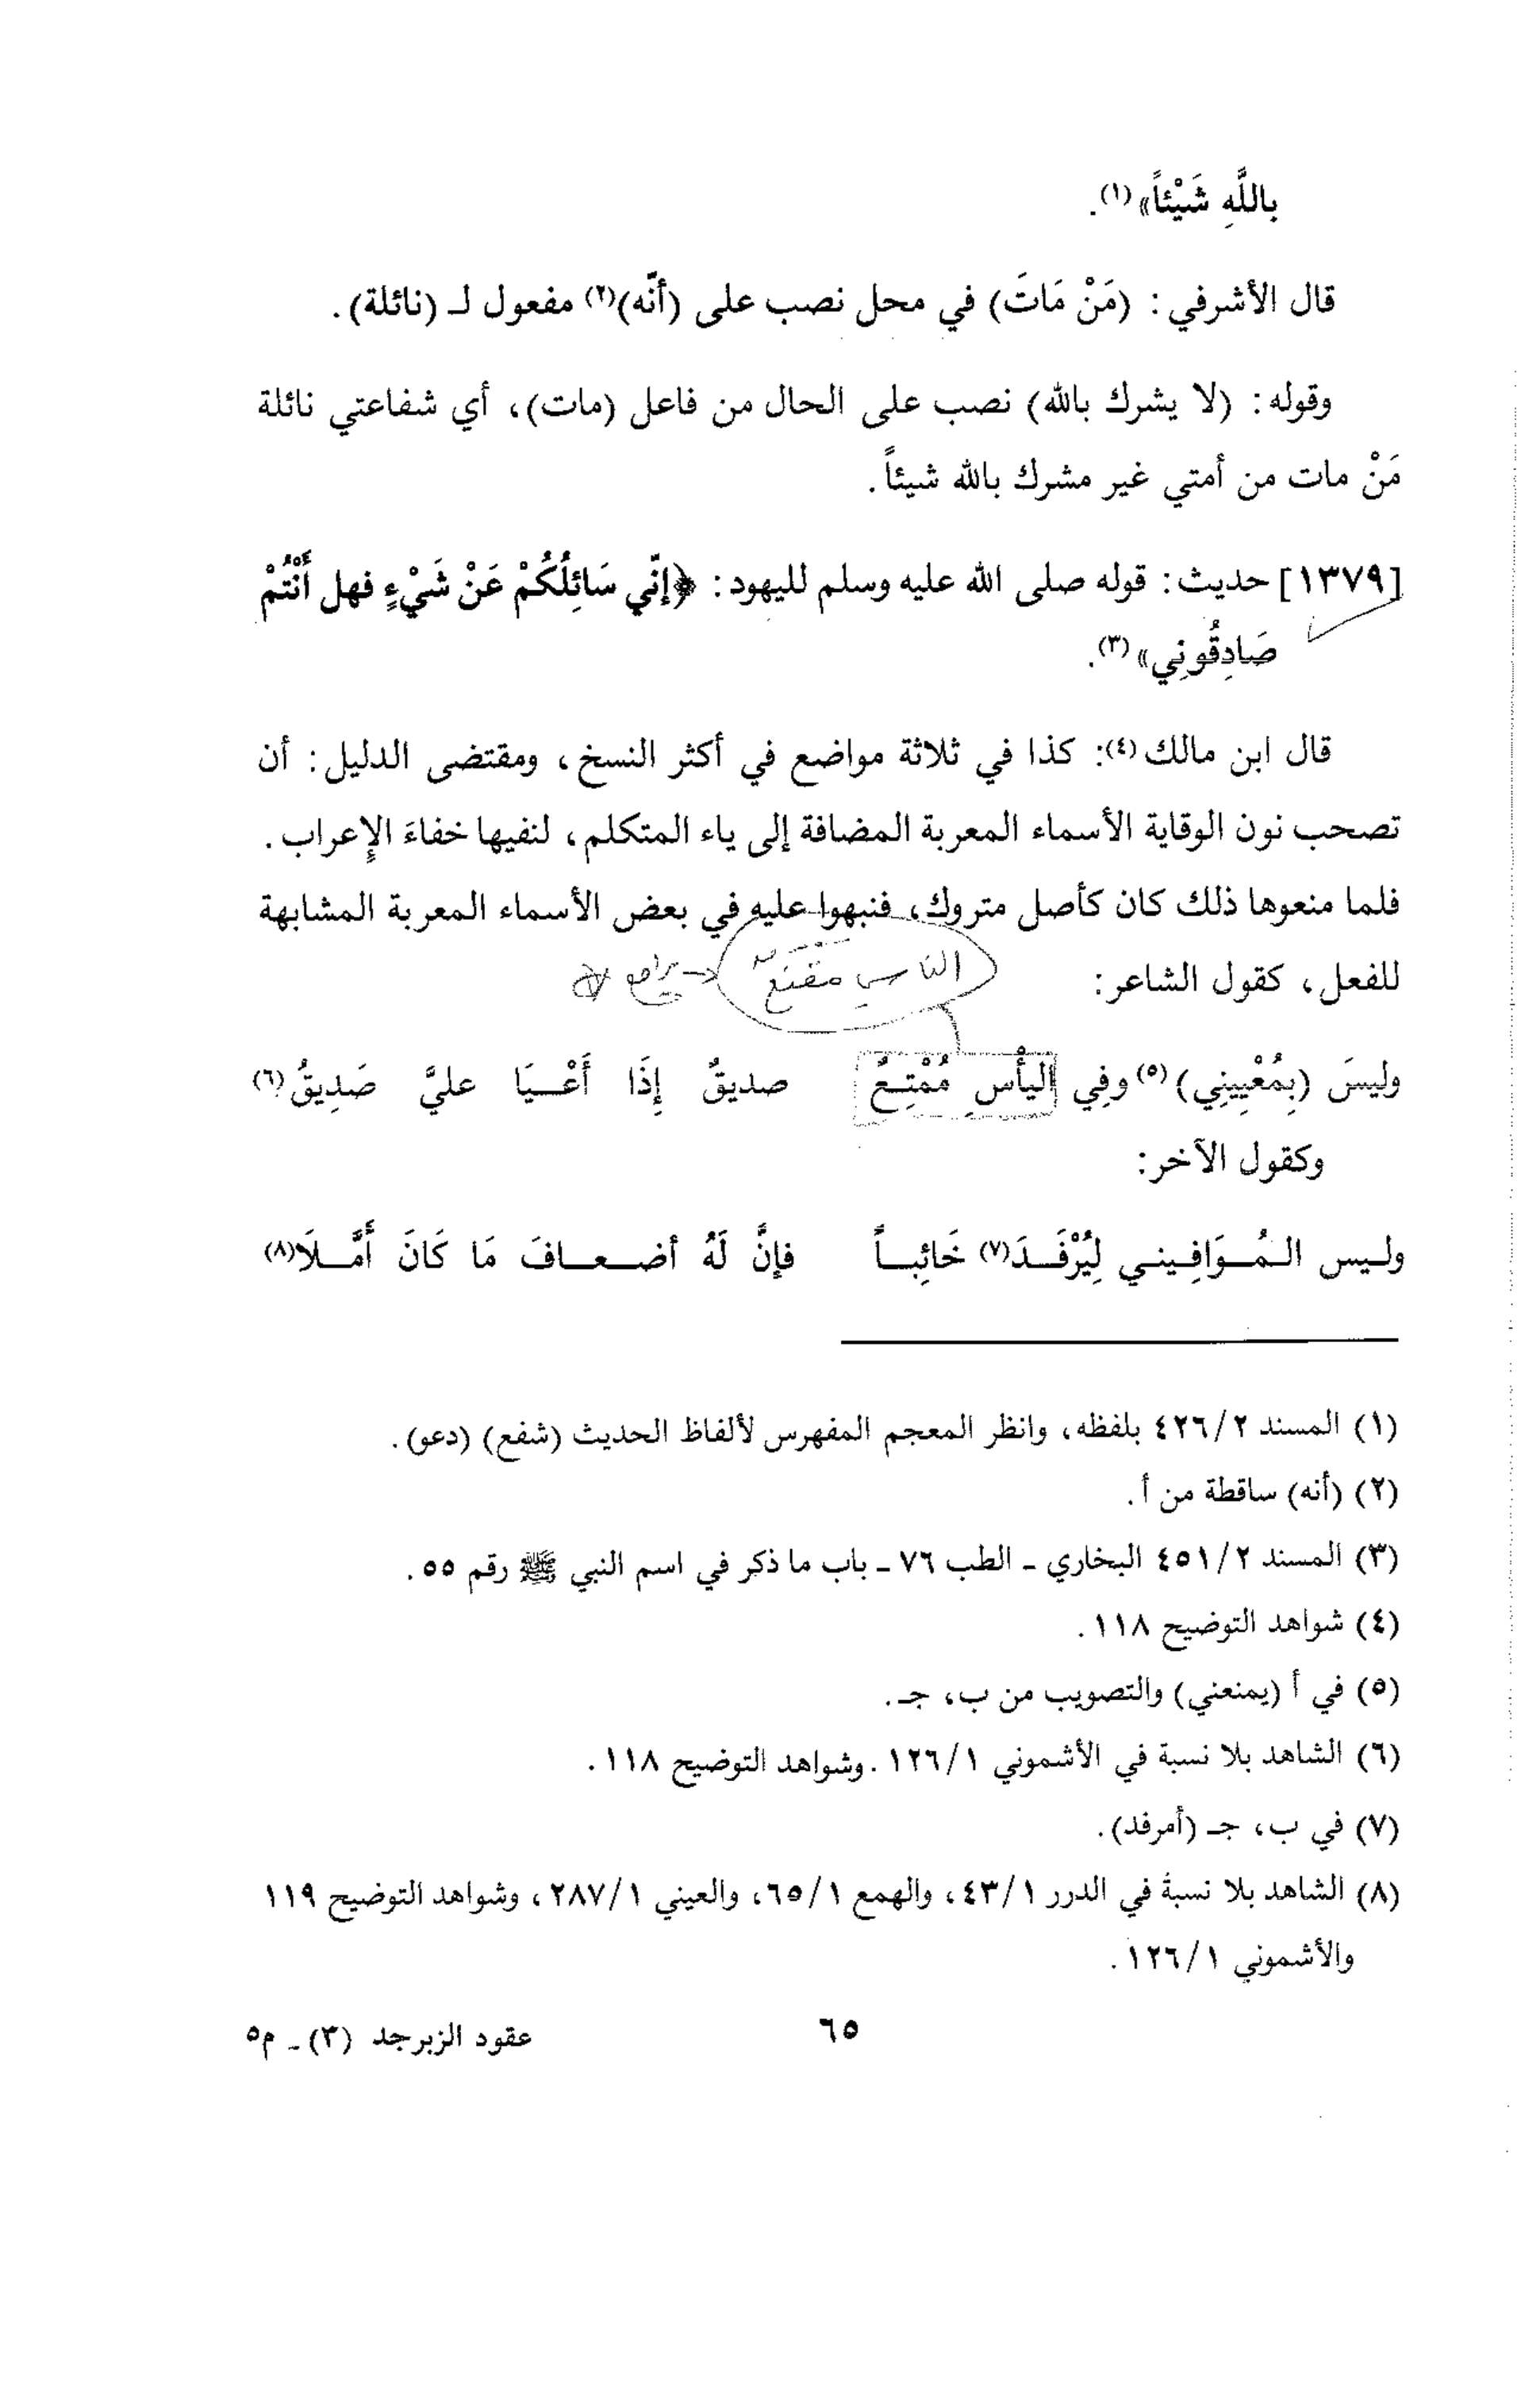 بِاللَّهِ شَيْئاً»(١).
قال الأشرفي: (مَنْ مَاتَ) في محل نصب على (أنّه)(٢) مفعول لـ (نائلة).
وقوله: (لا يشرك بالله) نصب على الحال من فاعل (مات)، أي شفاعتي نائلة
مَنْ مات من أمتي غير مشرك بالله شيئاً.
[١٣٧٩] حديث: قوله صلى الله عليه وسلم لليهود: ﴿إنّي سَائِلُكُمْ عَنْ شَيْءٍ فهل أَنْتُمْ
صَادِقُونِي»(٣).
قال ابن مالك(٤): كذا في ثلاثة مواضع في أكثر النسخ، ومقتضى الدليل: أن
تصحب نون الوقاية الأسماء المعربة المضافة إلى ياء المتكلم، لنفيها خفاءَ الإعراب.
فلما منعوها ذلك كان كأصل متروك، فنبهوا عليه في بعض الأسماء المعربة المشابهة
للفعل، كقول الشاعر:
الناسِ مقنعٌ
وليسَ (بِمُعْيِينِي)(٥) وفِي اليأْسِ مُمْتِـعٌ صديقٌ إِذَا أَعْـيَا عليَّ صَدِيقُ(٦)
وكقول الآخر:
ولـيس الـمُـوَافِـيـنـي لِيُرْفَـدَ(٧) خَائِبـاً فإنَّ لَهُ أضـعـافَ مَا كَانَ أَمَّـلَا(٨)
(١) المسند ٤٢٦/٢ بلفظه، وانظر المعجم المفهرس لألفاظ الحديث (شفع) (دعو).
(٢) (أنه) ساقطة من أ.
(٣) المسند ٤٥١/٢ البخاري ـ الطب ٧٦ ـ باب ما ذكر في اسم النبي ﷺ رقم ٥٥.
(٤) شواهد التوضيح ١١٨.
(٥) في أ (يمنعني) والتصويب من ب، جـ.
(٦) الشاهد بلا نسبة في الأشموني ١٢٦/١. وشواهد التوضيح ١١٨.
(٧) في ب، جـ (أمرفد).
(٨) الشاهد بلا نسبةُ في الدرر ٤٣/١، والهمع ٦٥/١، والعيني ٢٨٧/١، وشواهد التوضيح ١١٩
والأشموني ١٢٦/١.
٦٥
عقود الزبرجد (٣) ـ م٥